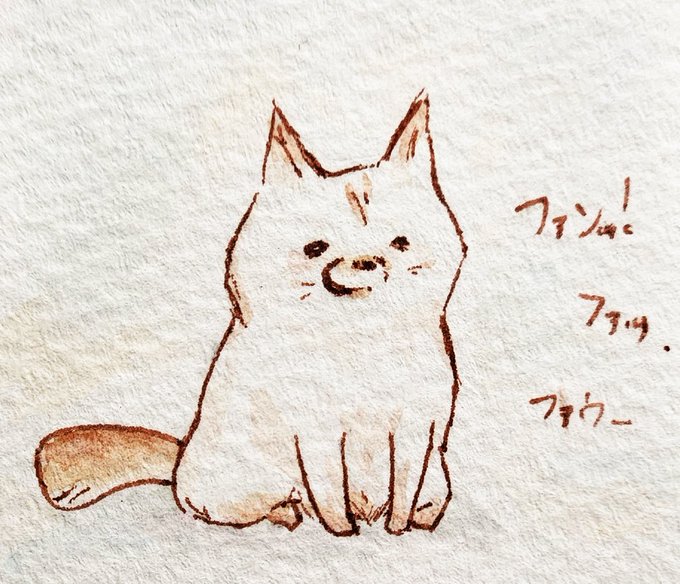 ファンッ!
ファッ.
ファウー